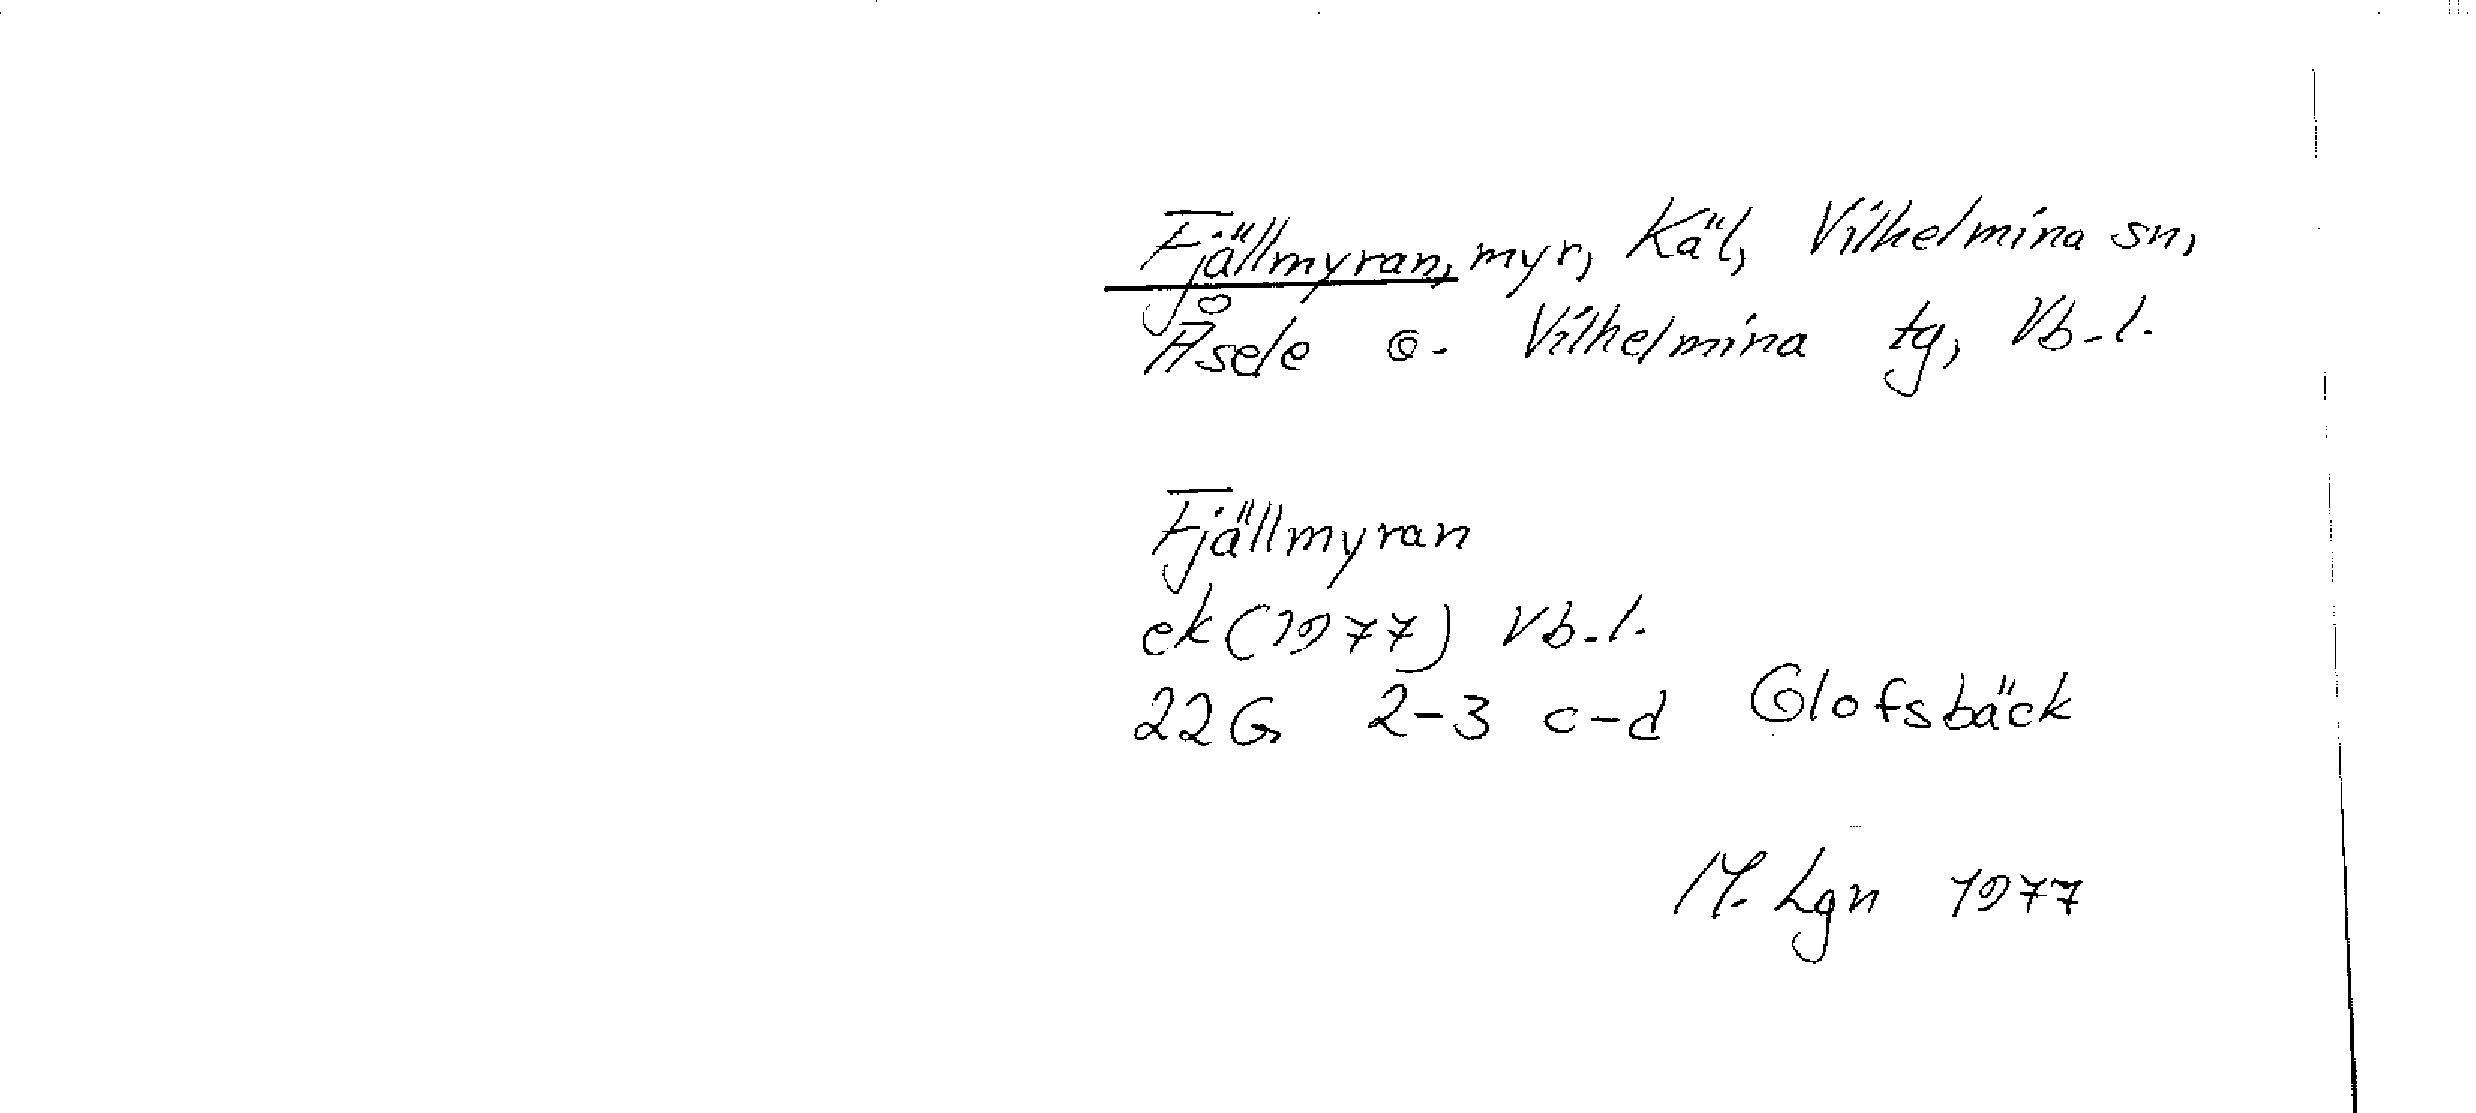 Fjällmyran, myr, Käl, Vilhelmina sn,
Åsele o. Vilhelmina tg, Vb.l.
Fjällmyran
ek (1977) Vb.l.
22G 2-3 c-d Olofsbäck
M. Lgn 1977